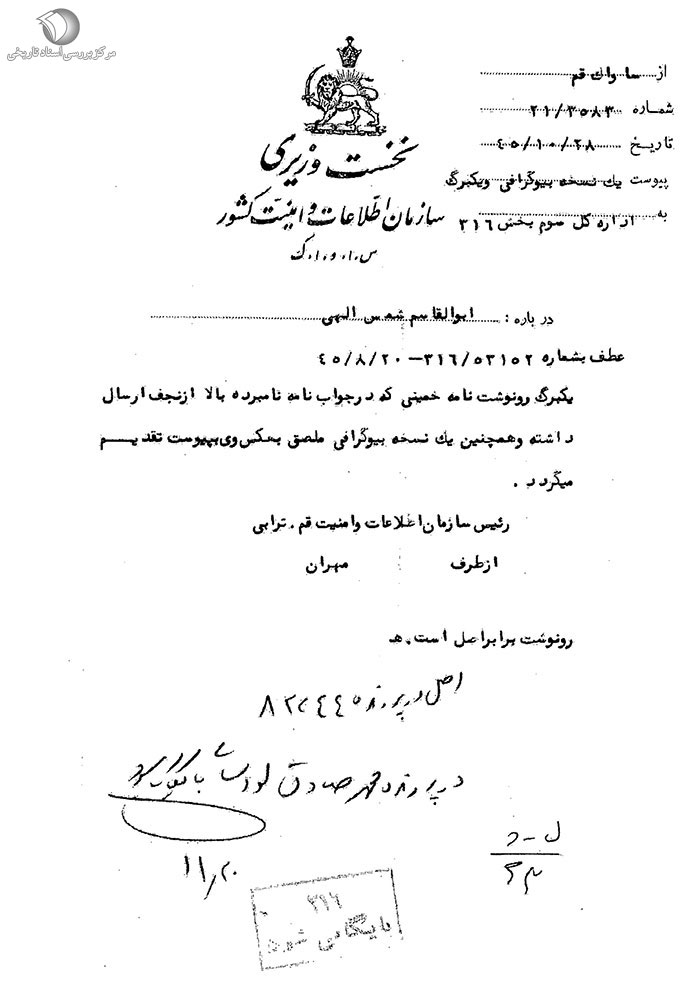 مرکز بررسی اسناد تاریخی
از ساواك قم
شماره ۲۱/۳۵۸۳
تاریخ ۴۵/۱۰/۲۸
پیوست يك نسخه بیوگرافی ویکبرگ
به اداره کل سوم بخش ۳۱۶
نخست وزیری
سازمان اطلاعات و امنیت کشور
س.ا.و.ا.ک
درباره : ابوالقاسم شمس الهی
عطف بشماره ۳۱۶/۵۳۱۵۲-۴۵/۸/۲۰
یکبرگ رونوشت نامه خمینی که درجواب نامه نامبرده بالا ازنجف ارسال
داشته وهمچنین يك نسخه بیوگرافی ملصق بعکس وی بپیوست تقدیم
میگردد .
رئیس سازمان اطلاعات وامنیت قم . ترابی
ازطرف مهران
رونوشت برابراصل است . هـ
اصل در پرونده ۸۲۴۴۵
در پرونده محمد صادق
۱۱/۲۰
۳۱۶
بایگانی شود